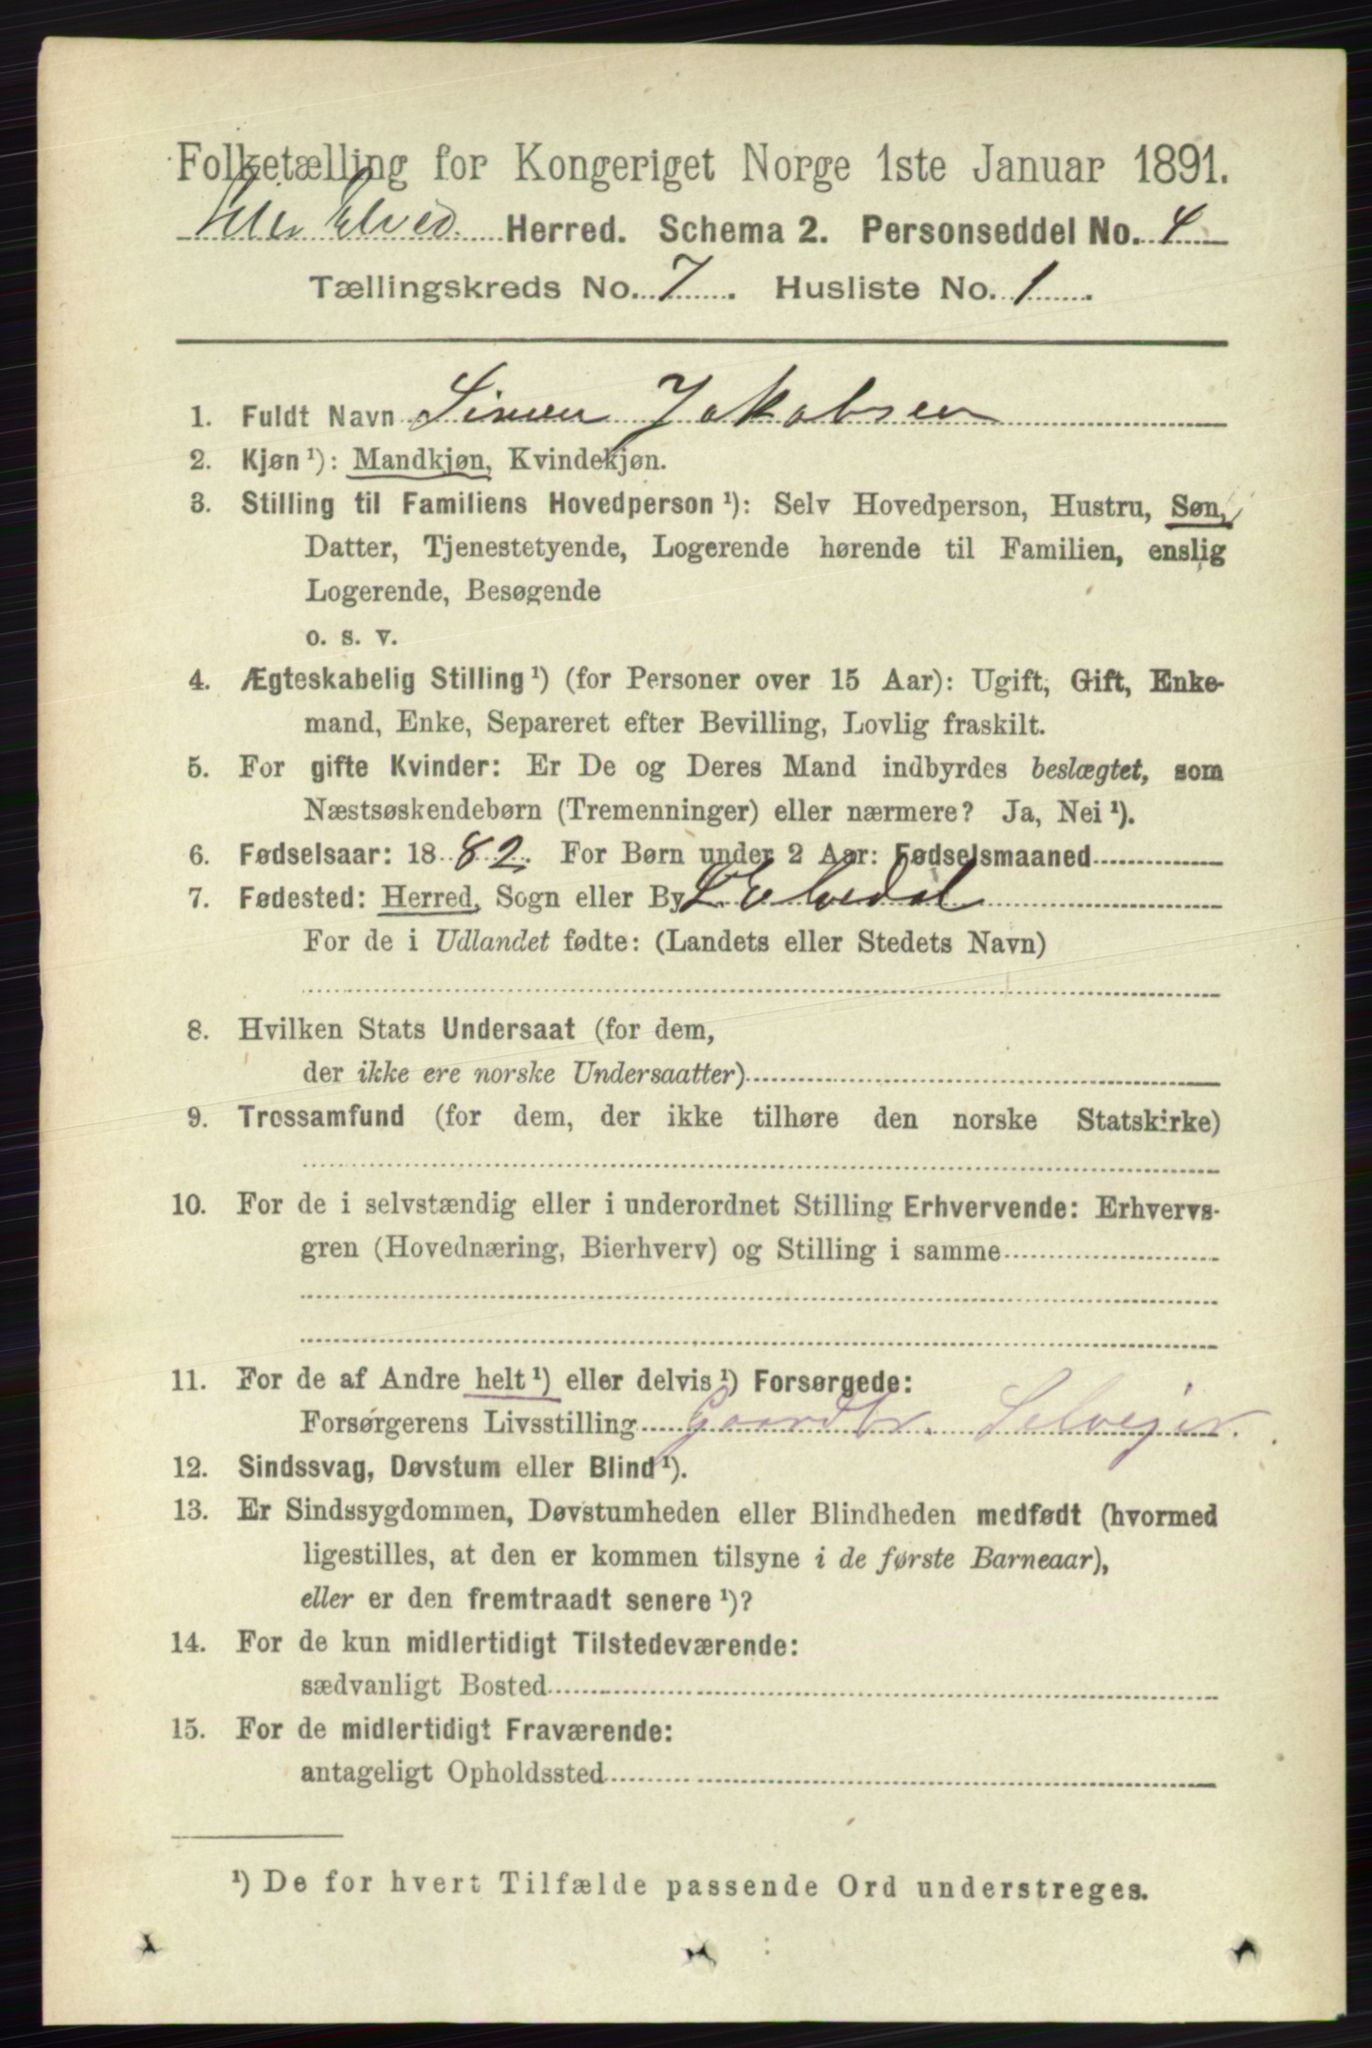 Folketælling for Kongeriget Norge 1ste Januar 1891.
Elved Herred. Schema 2. Personseddel No. 4
Tællingskreds No. 7. Husliste No. 1.
1. Fuldt Navn Simen Jakobsen
2. Kjøn ¹): Mandkjøn, Kvindekjøn.
3. Stilling til Familiens Hovedperson ¹): Selv Hovedperson, Hustru, Søn,
Datter, Tjenestetyende, Logerende hørende til Familien, enslig
Logerende, Besøgende
o. s. v.
4. Ægteskabelig Stilling ¹) (for Personer over 15 Aar): Ugift, Gift, Enke-
mand, Enke, Separeret efter Bevilling, Lovlig fraskilt.
5. For gifte Kvinder: Er De og Deres Mand indbyrdes beslægtet, som
Næstsøskendebørn (Tremenninger) eller nærmere? Ja, Nei ¹).
6. Fødselsaar: 1882. For Børn under 2 Aar: Fødselsmaaned
7. Fødested: Herred, Sogn eller By L Elvedal
For de i Udlandet fødte: (Landets eller Stedets Navn)
8. Hvilken Stats Undersaat (for dem,
der ikke ere norske Undersaatter)
9. Trossamfund (for dem, der ikke tilhøre den norske Statskirke)
10. For de i selvstændig eller i underordnet Stilling Erhvervende: Erhvervs-
gren (Hovednæring, Bierhverv) og Stilling i samme
11. For de af Andre helt ¹) eller delvis ¹) Forsørgede:
Forsørgerens Livsstilling Gaardbr. Selvejer.
12. Sindssvag, Døvstum eller Blind ¹).
13. Er Sindssygdommen, Døvstumheden eller Blindheden medfødt (hvormed
ligestilles, at den er kommen tilsyne i de første Barneaar),
eller er den fremtraadt senere ¹)?
14. For de kun midlertidigt Tilstedeværende:
sædvanligt Bosted
15. For de midlertidigt Fraværende:
antageligt Opholdssted
¹) De for hvert Tilfælde passende Ord understreges.